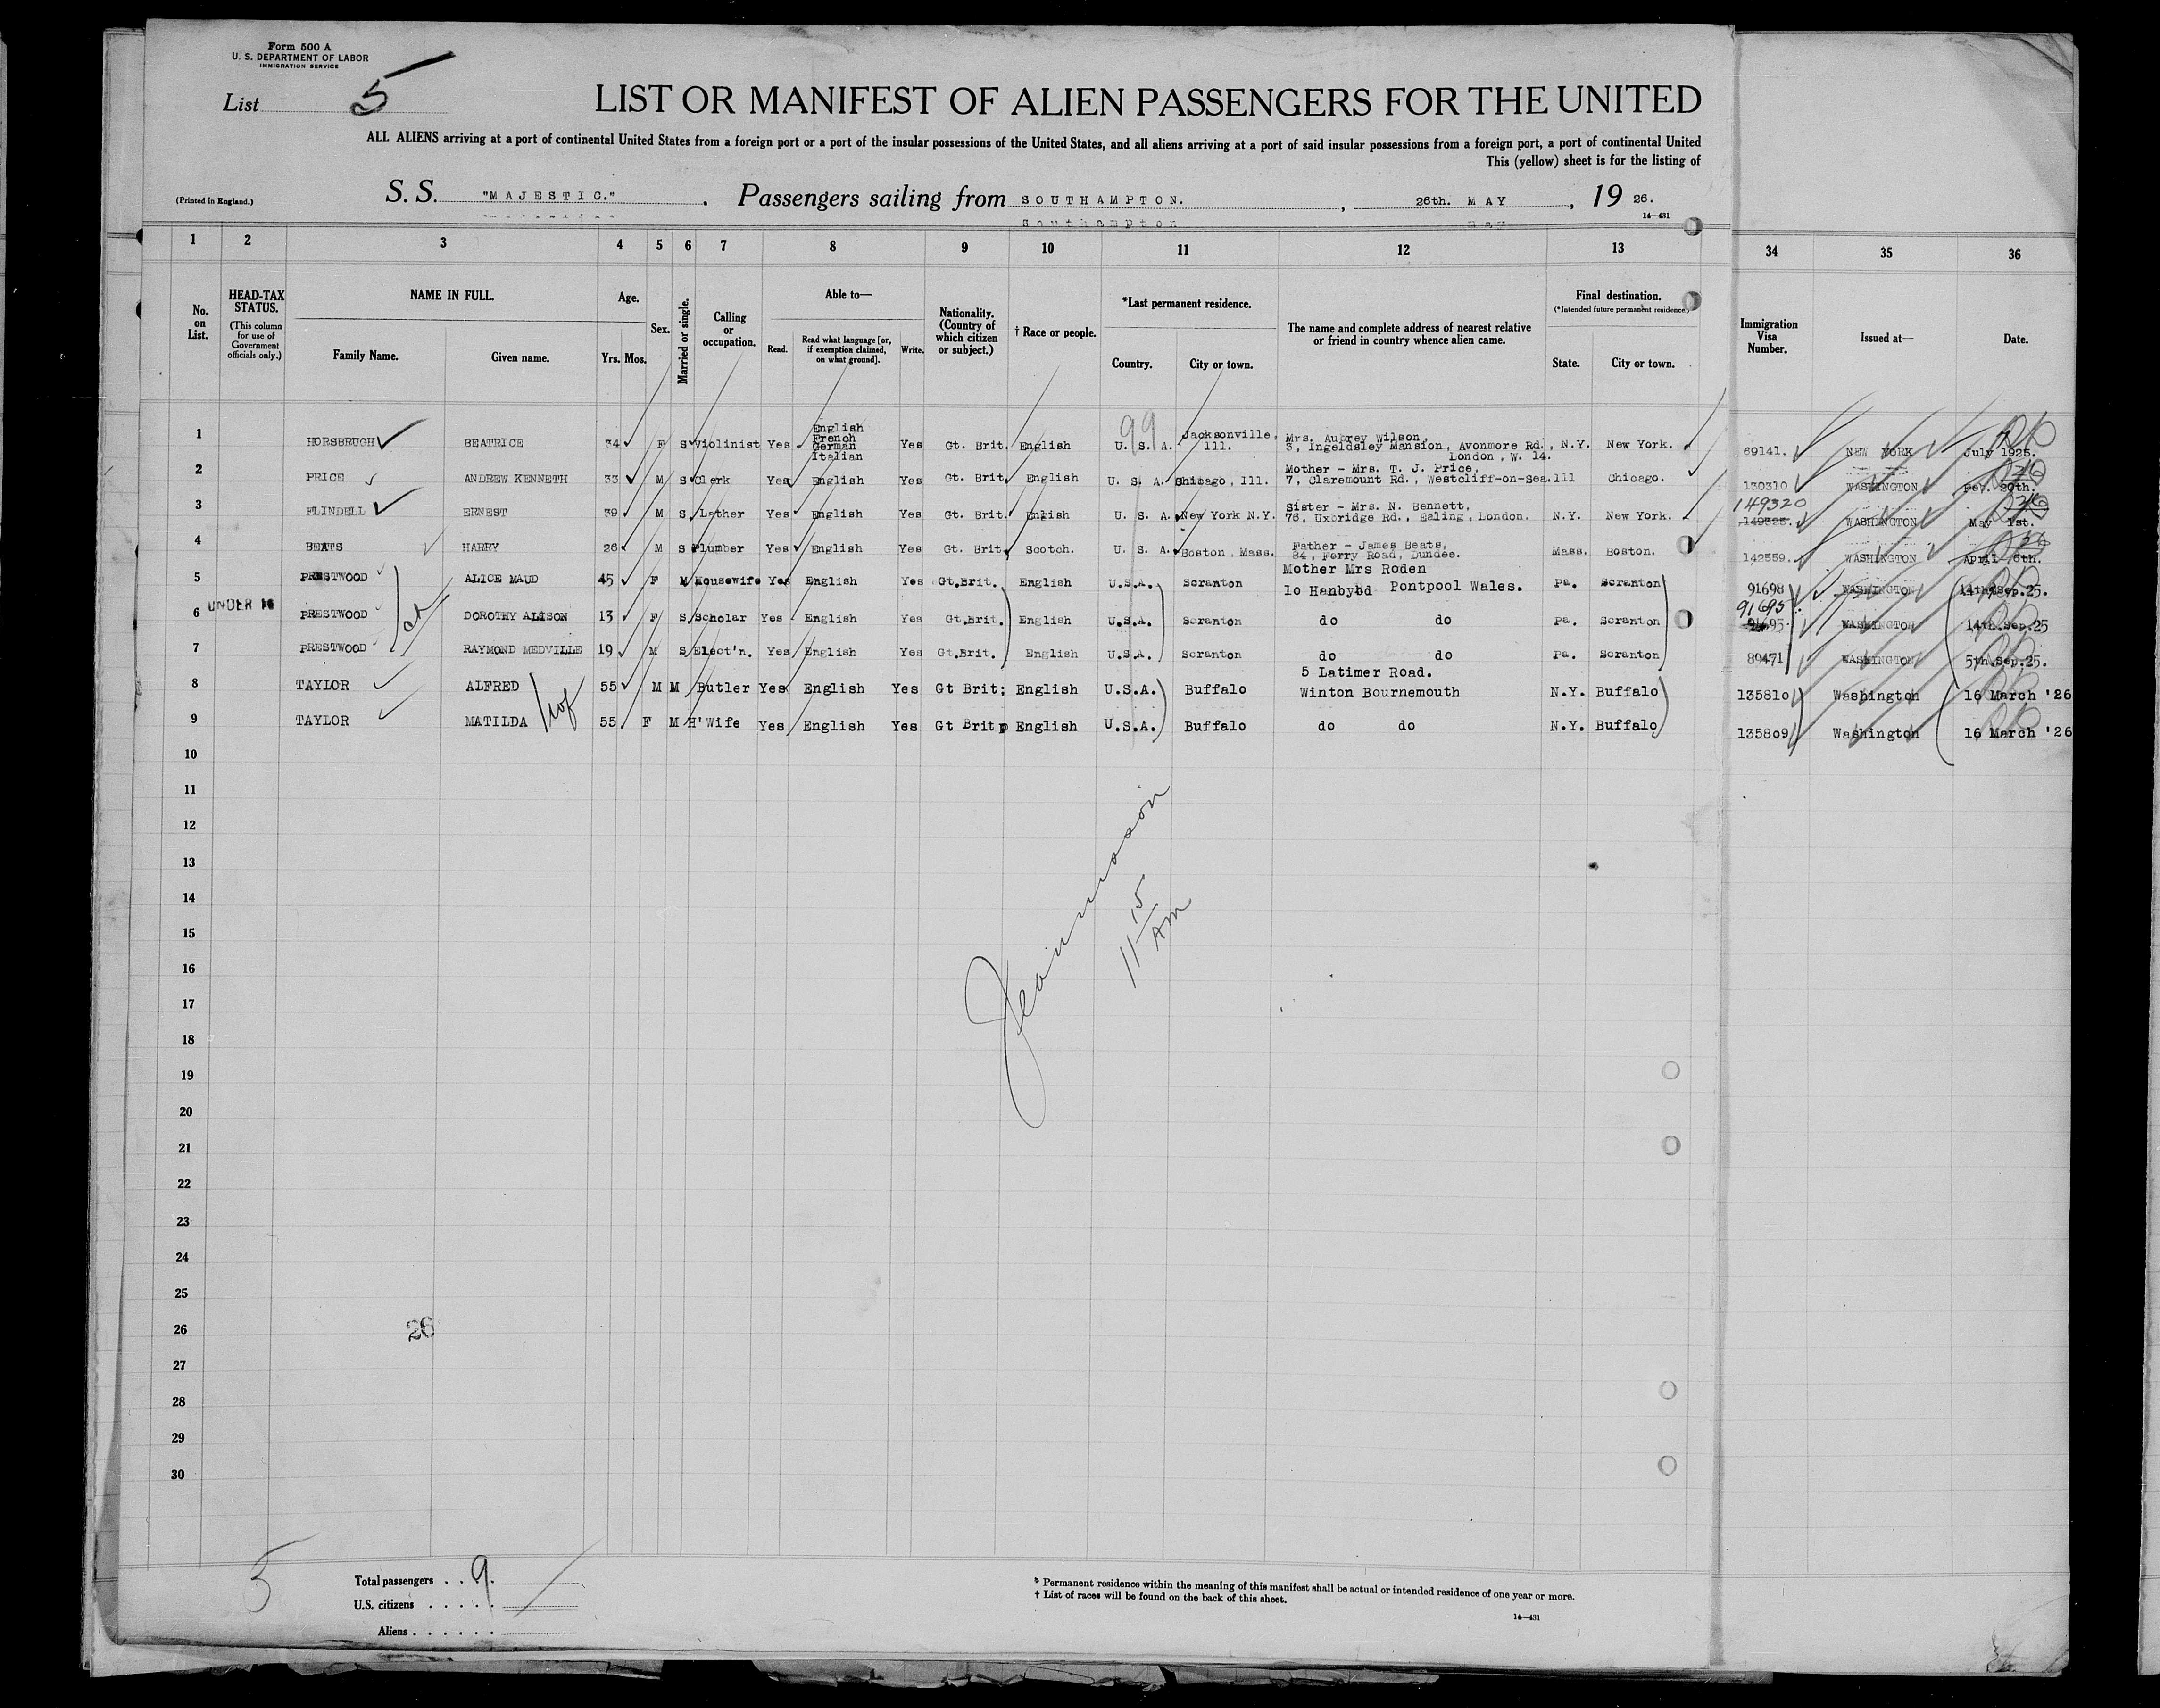 Form 500 A
U. S. DEPARTMENT OF LABOR
IMMIGRATION SERVICE
List 5
LIST OR MANIFEST OF ALIEN PASSENGERS FOR THE UNITED
ALL ALIENS arriving at a port of continental United States from a foreign port or a port of the insular possessions of the United States, and all aliens arriving at a port of said insular possessions from a foreign port, a port of continental United
This (yellow) sheet is for the listing of
(Printed in England.) S. S. "MAJESTIC." . Passengers sailing from SOUTHAMPTON. , 26th. MAY , 19 26.
Southampton May
14—431
1 2 3 4 5 6 7 8 9 10 11 12 13 34 35 36
No. on List.
HEAD-TAX STATUS.
(This column for use of Government officials only.)
NAME IN FULL.
Family Name. Given name.
Age.
Yrs. Mos.
Sex.
Married or single.
Calling or occupation.
Able to—
Read. Read what language [or, if exemption claimed, on what ground]. Write.
Nationality. (Country of which citizen or subject.)
† Race or people.
*Last permanent residence.
Country. City or town.
The name and complete address of nearest relative or friend in country whence alien came.
Final destination.
(*Intended future permanent residence.)
State. City or town.
Immigration Visa Number.
Issued at—
Date.
99
1 HORSBRUGH BEATRICE 34 F S Violinist Yes English French German Italian Yes Gt. Brit. English U. S. A. Jacksonville, Ill. Mrs. Aubrey Wilson, 3, Ingeldsley Mansion, Avonmore Rd., London, W. 14. N.Y. New York. 69141. NEW YORK July 1925.
2 PRICE ANDREW KENNETH 33 M S Clerk Yes English Yes Gt. Brit. English U. S. A. Chicago, Ill. Mother - Mrs. T. J. Price, 7, Claremount Rd., Westcliff-on-Sea. Ill Chicago. 130310 WASHINGTON Fev. 20th.
3 FLINDELL ERNEST 39 M S Lather Yes English Yes Gt. Brit. Engish U. S. A. New York N.Y. Sister - Mrs. N. Bennett, 76, Uxbridge Rd., Ealing, London. N.Y. New York. 149320 149325. WASHINGTON May 1st.
4 BEATS HARRY 26 M S Plumber Yes English Yes Gt. Brit. Scotch. U. S. A. Boston, Mass. Father - James Beats, 84, Ferry Road, Dundee. Mass. Boston. 142559. WASHINGTON April 6th.
5 PRESTWOOD ALICE MAUD 45 F M Housewife Yes English Yes Gt.Brit. English U.S.A. Scranton Mother Mrs Roden 10 Hanbybd Pontpool Wales. Pa. Scranton 91698 WASHINGTON 14th.Sep.25.
6 UNDER 16 PRESTWOOD DOROTHY ALISON 13 F S Scholar Yes English Yes Gt.Brit. English U.S.A. Scranton do do Pa. Scranton 91695 WASHINGTON 14th.Sep.25
7 PRESTWOOD RAYMOND MEDVILLE 19 M S Elect'n. Yes English Yes Gt.Brit. English U.S.A. Scranton do do Pa. Scranton 89471 WASHINGTON 5th.Sep.25.
8 TAYLOR ALFRED 55 M M Butler Yes English Yes Gt Brit: English U.S.A. Buffalo 5 Latimer Road. Winton Bournemouth N.Y. Buffalo 135810 Washington 16 March '26
9 TAYLOR MATILDA 55 F M H'Wife Yes English Yes Gt Brit English U.S.A. Buffalo do do N.Y. Buffalo 135809 Washington 16 March '26
10
11
12
13
14
15
16
17
18
19
20
21
22
23
24
25
26
27
28
29
30
11 15 AM
26
5
Total passengers . . 9.
U.S. citizens . . . . .
Aliens . . . . . .
* Permanent residence within the meaning of this manifest shall be actual or intended residence of one year or more.
† List of races will be found on the back of this sheet.
14—431